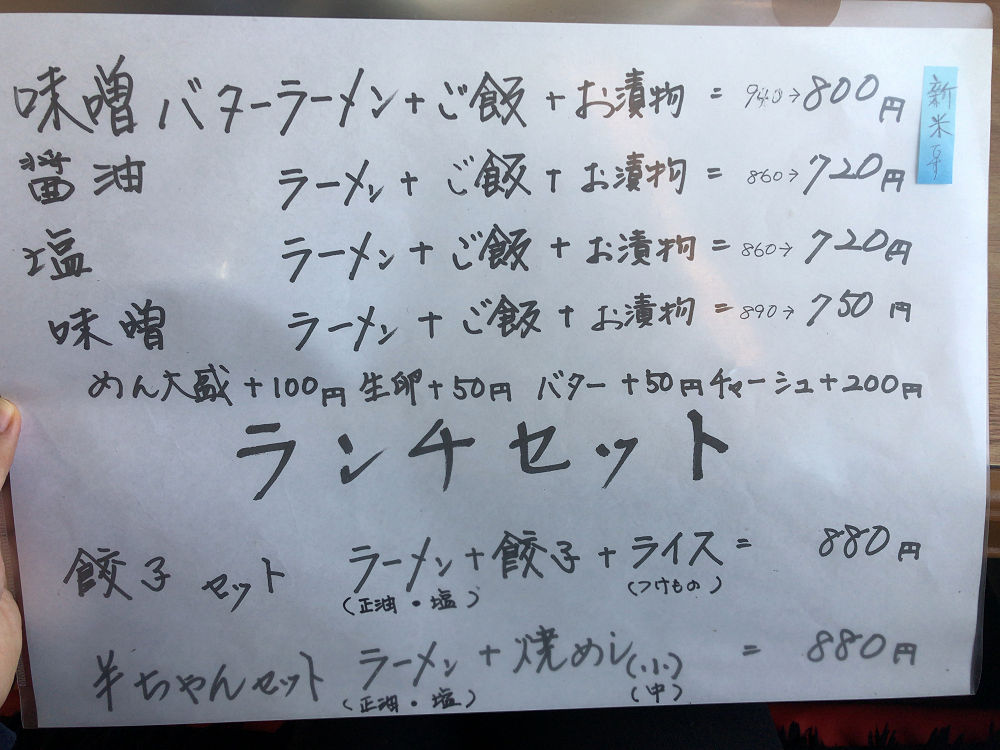 味噌バターラーメン+ご飯+お漬物=940→800円
新米です
醤油 ラーメン+ご飯+お漬物=860→720円
塩 ラーメン+ご飯+お漬物=860→720円
味噌 ラーメン+ご飯+お漬物=890→750円
めん大盛+100円 生卵+50円 バター+50円 チャーシュー+200円
ランチセット
餃子セット ラーメン+餃子+ライス= 880円
(正油・塩) (つけもの)
半ちゃんセット ラーメン+焼めし(小) = 880円
(正油・塩) (中)